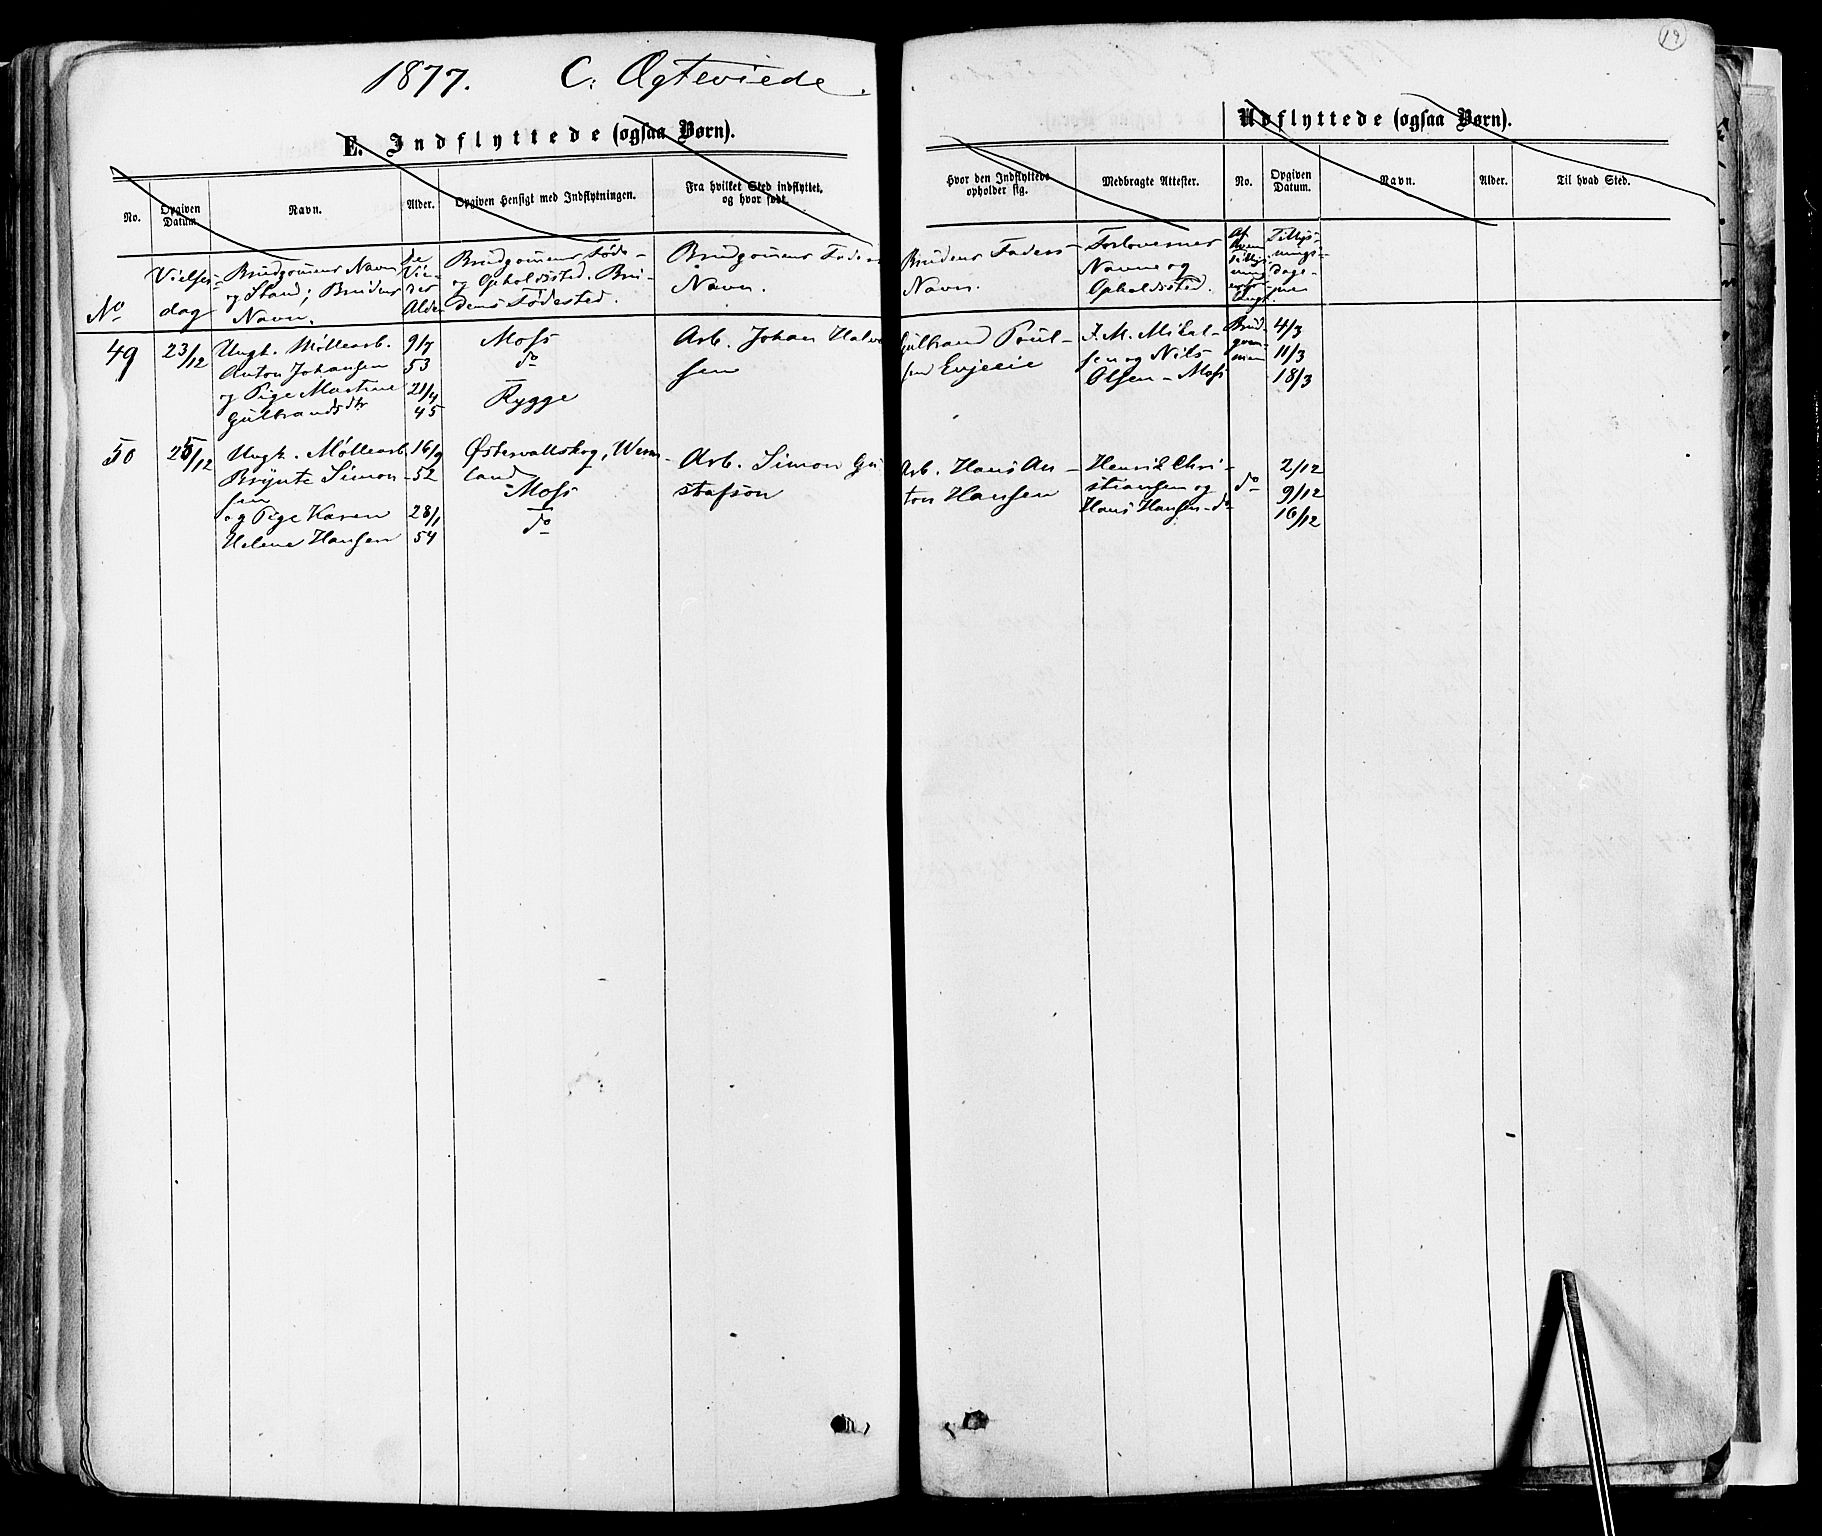 19
1877. C: Ægteviede.
E. Indflyttede (ogsaa Børn).
Udflyttede (ogsaa Børn).
No.
Opgiven Datum.
Navn.
Alder.
Opgiven Hensigt med Indflytningen.
Fra hvilket Sted indflyttet,
og hvor født.
Hvor den Indflyttede
opholder sig.
Medbragte Attester.
No.
Opgiven
Datum.
Navn.
Alder.
Til hvad Sted.
No
Vielses-
dag
Brudgomens Navn
og Stand; Brudens
Navn.
De
Vie-
des
Alder
Brudgomens Føde-
og Opholdssted. Bru-
dens Fødested.
Brudgomens Faders
Navn.
Brudens Faders
Navn.
Forlovernes
Navne og
Opholdssted.
Af
hvem
Tillys-
nings-
dage-
ne
49
23/12
Ungk. Møllearb.
Anton Johansen
og Pige Martine
Gulbrandsdtr
9/7
53
21/4
45
Moss
do
Rygge
Arb. Johan Halvor
sen
Gulbrand Poul-
sen Evjeeie
J. M. Mikal-
sen og Nils
Olsen - Moss
Brud-
gom-
men
4/3
11/3
18/3
50
25/12
Ungk. Møllearb.
Brynte Simon-
sen
og Pige Karen
Helene Hansen
16/9
52
28/1
54
Østervallskog, Werm-
land
Moss
do
Arb. Simon Gu
stafson
Arb. Hans An-
ton Hansen
Henrik Chri-
stiansen og
Hans Hansen - do
do
2/12
9/12
16/12